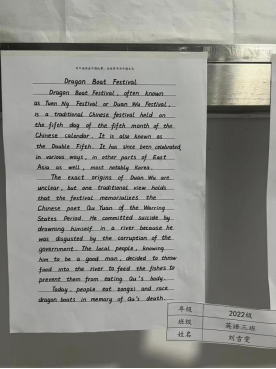 Dragon Boat Festival
Dragon Boat Festival, often known
as Tuen Ng Festival or Duan Wu Festival,
is a traditional Chinese festival held on
the fifth day of the fifth month of the
Chinese calendar. It is also known as
the Double Fifth. It has since been celebrated,
in various ways, in other parts of East
Asia as well, most notably Korea.
The exact origins of Duan Wu are
unclear, but one traditional view holds
that the festival memorializes the
Chinese poet Qu Yuan of the Warring
States Period. He committed suicide by
drowning himself in a river because he
was disgusted by the corruption of the
government. The local people, knowing
him to be a good man, decided to throw
food into the river to feed the fishes to
prevent them from eating Qu's body.
Today, people eat zongzi and race
dragon boats in memory of Qu's death.
年级 2022级
班级 英语三班
姓名 刘雪雯